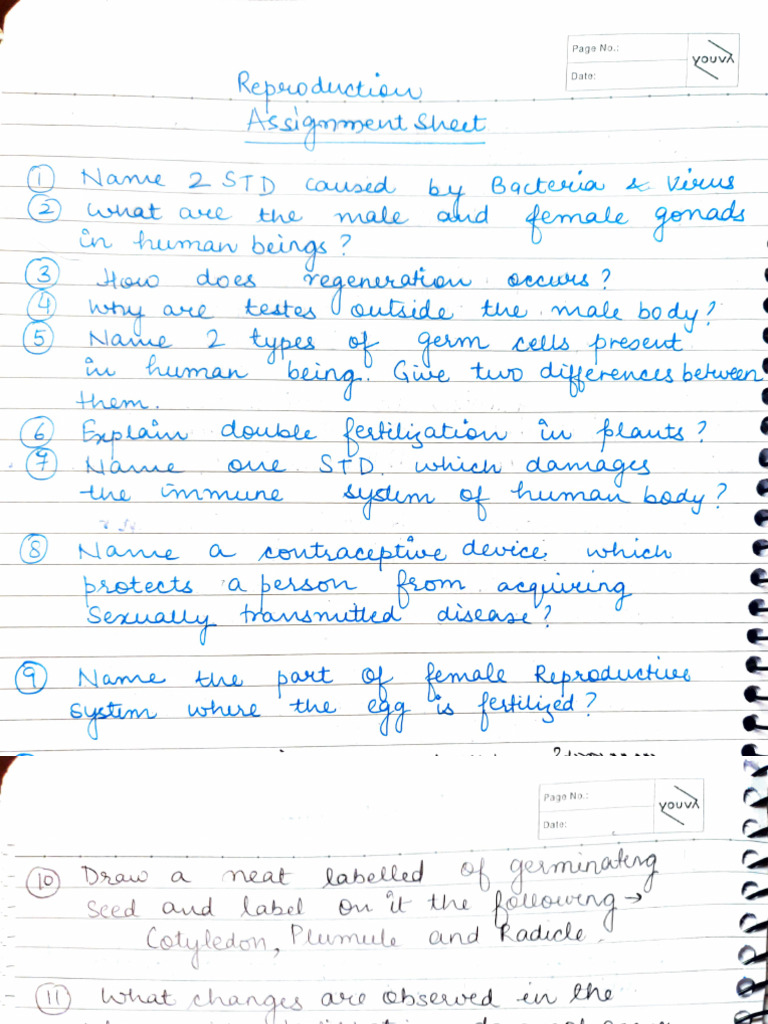 Page No.:
Date:
youva
Reproduction
Assignment Sheet
① Name 2 STD caused by Bacteria & Virus
② What are the male and female gonads
in human beings?
③ How does regeneration occurs?
④ Why are testes outside the male body?
⑤ Name 2 types of germ cells present
in human being. Give two differences between
them.
⑥ Explain double fertilization in plants?
⑦ Name one STD which damages
the immune system of human body?
⑧ Name a contraceptive device which
protects a person from acquiring
Sexually transmitted disease?
⑨ Name the part of female Reproductive
system where the egg is fertilized?
Page No.:
Date:
youva
⑩ Draw a neat labelled of germinating
seed and label on it the following →
Cotyledon, Plumule and Radicle.
⑪ What changes are observed in the